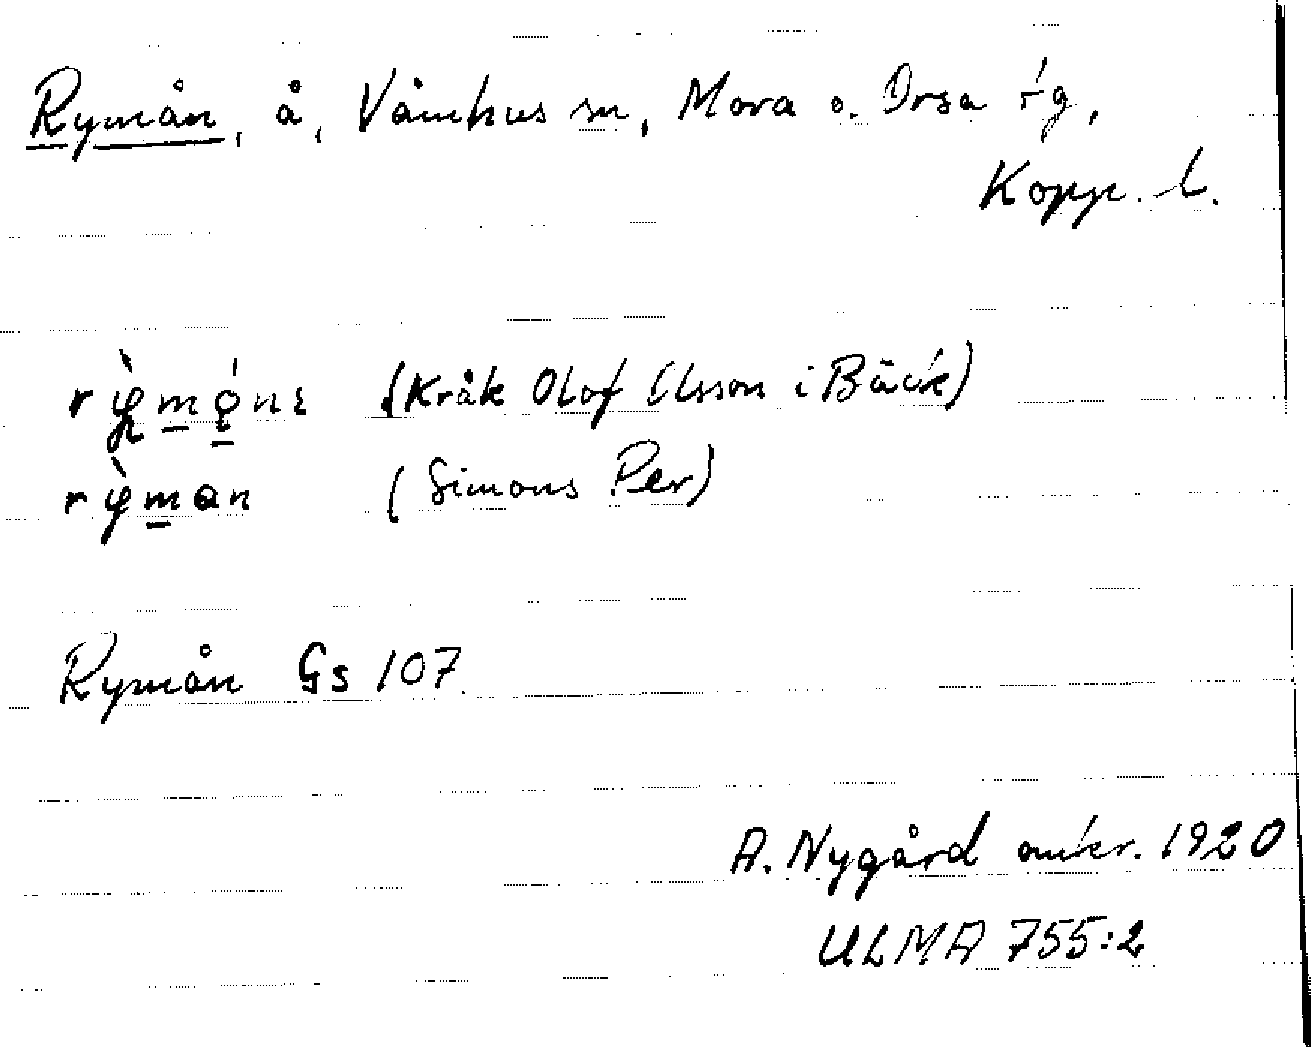 Rymån, å, Våmhus sn, Mora o. Orsa tg,
Kopp. l.
(Kråk Olof Olsson i Bäck)
rỳman (Simons Per)
Rymån Gs 107
A. Nygård omkr. 1920
ULMA 755:2